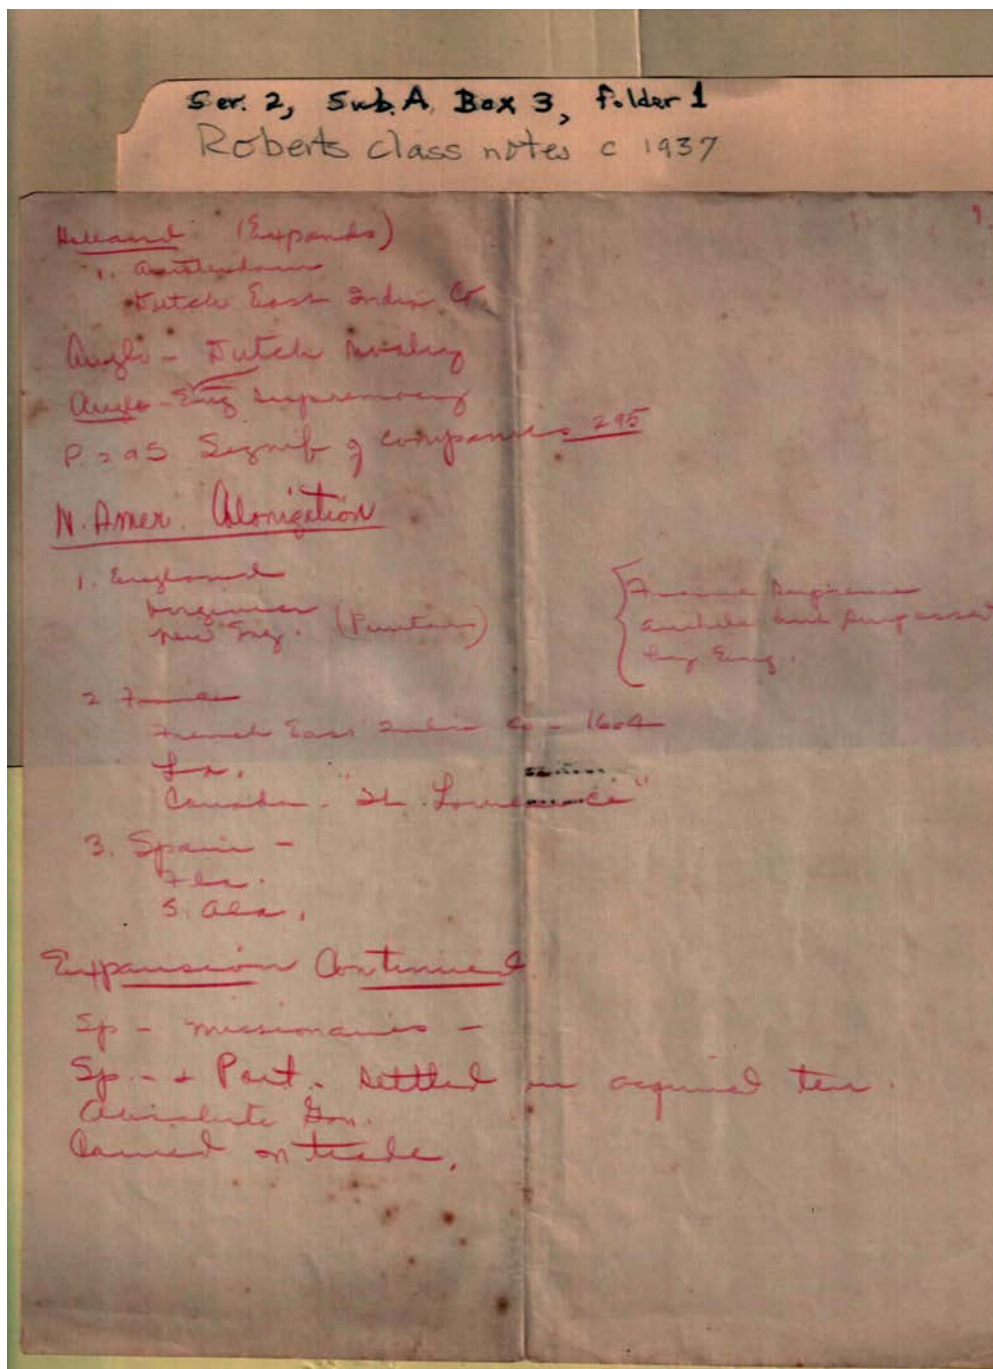 Ser. 2, Sub. A. Box 3, folder 1
Roberts class notes c 1937
9.
Holland (Expands)
1. Amsterdam
Dutch East India Co.
Anglo - Dutch rivalry
Anglo - Eng supremacy
P. 295 Signif of companies 295
N. Amer. Colonization
1. England
Virginia
New Eng. (Puritans)
{France supreme
awhile but surpassed
by Eng.
2 France
French East India Co - 1604
La.
Canada. "St. Lawrence"
3. Spain -
Fla.
S. Ala.
Expansion Continued
Sp - missionaries -
Sp. - + Port. settled in acquired terr.
Absolute Gov.
Carried on trade.